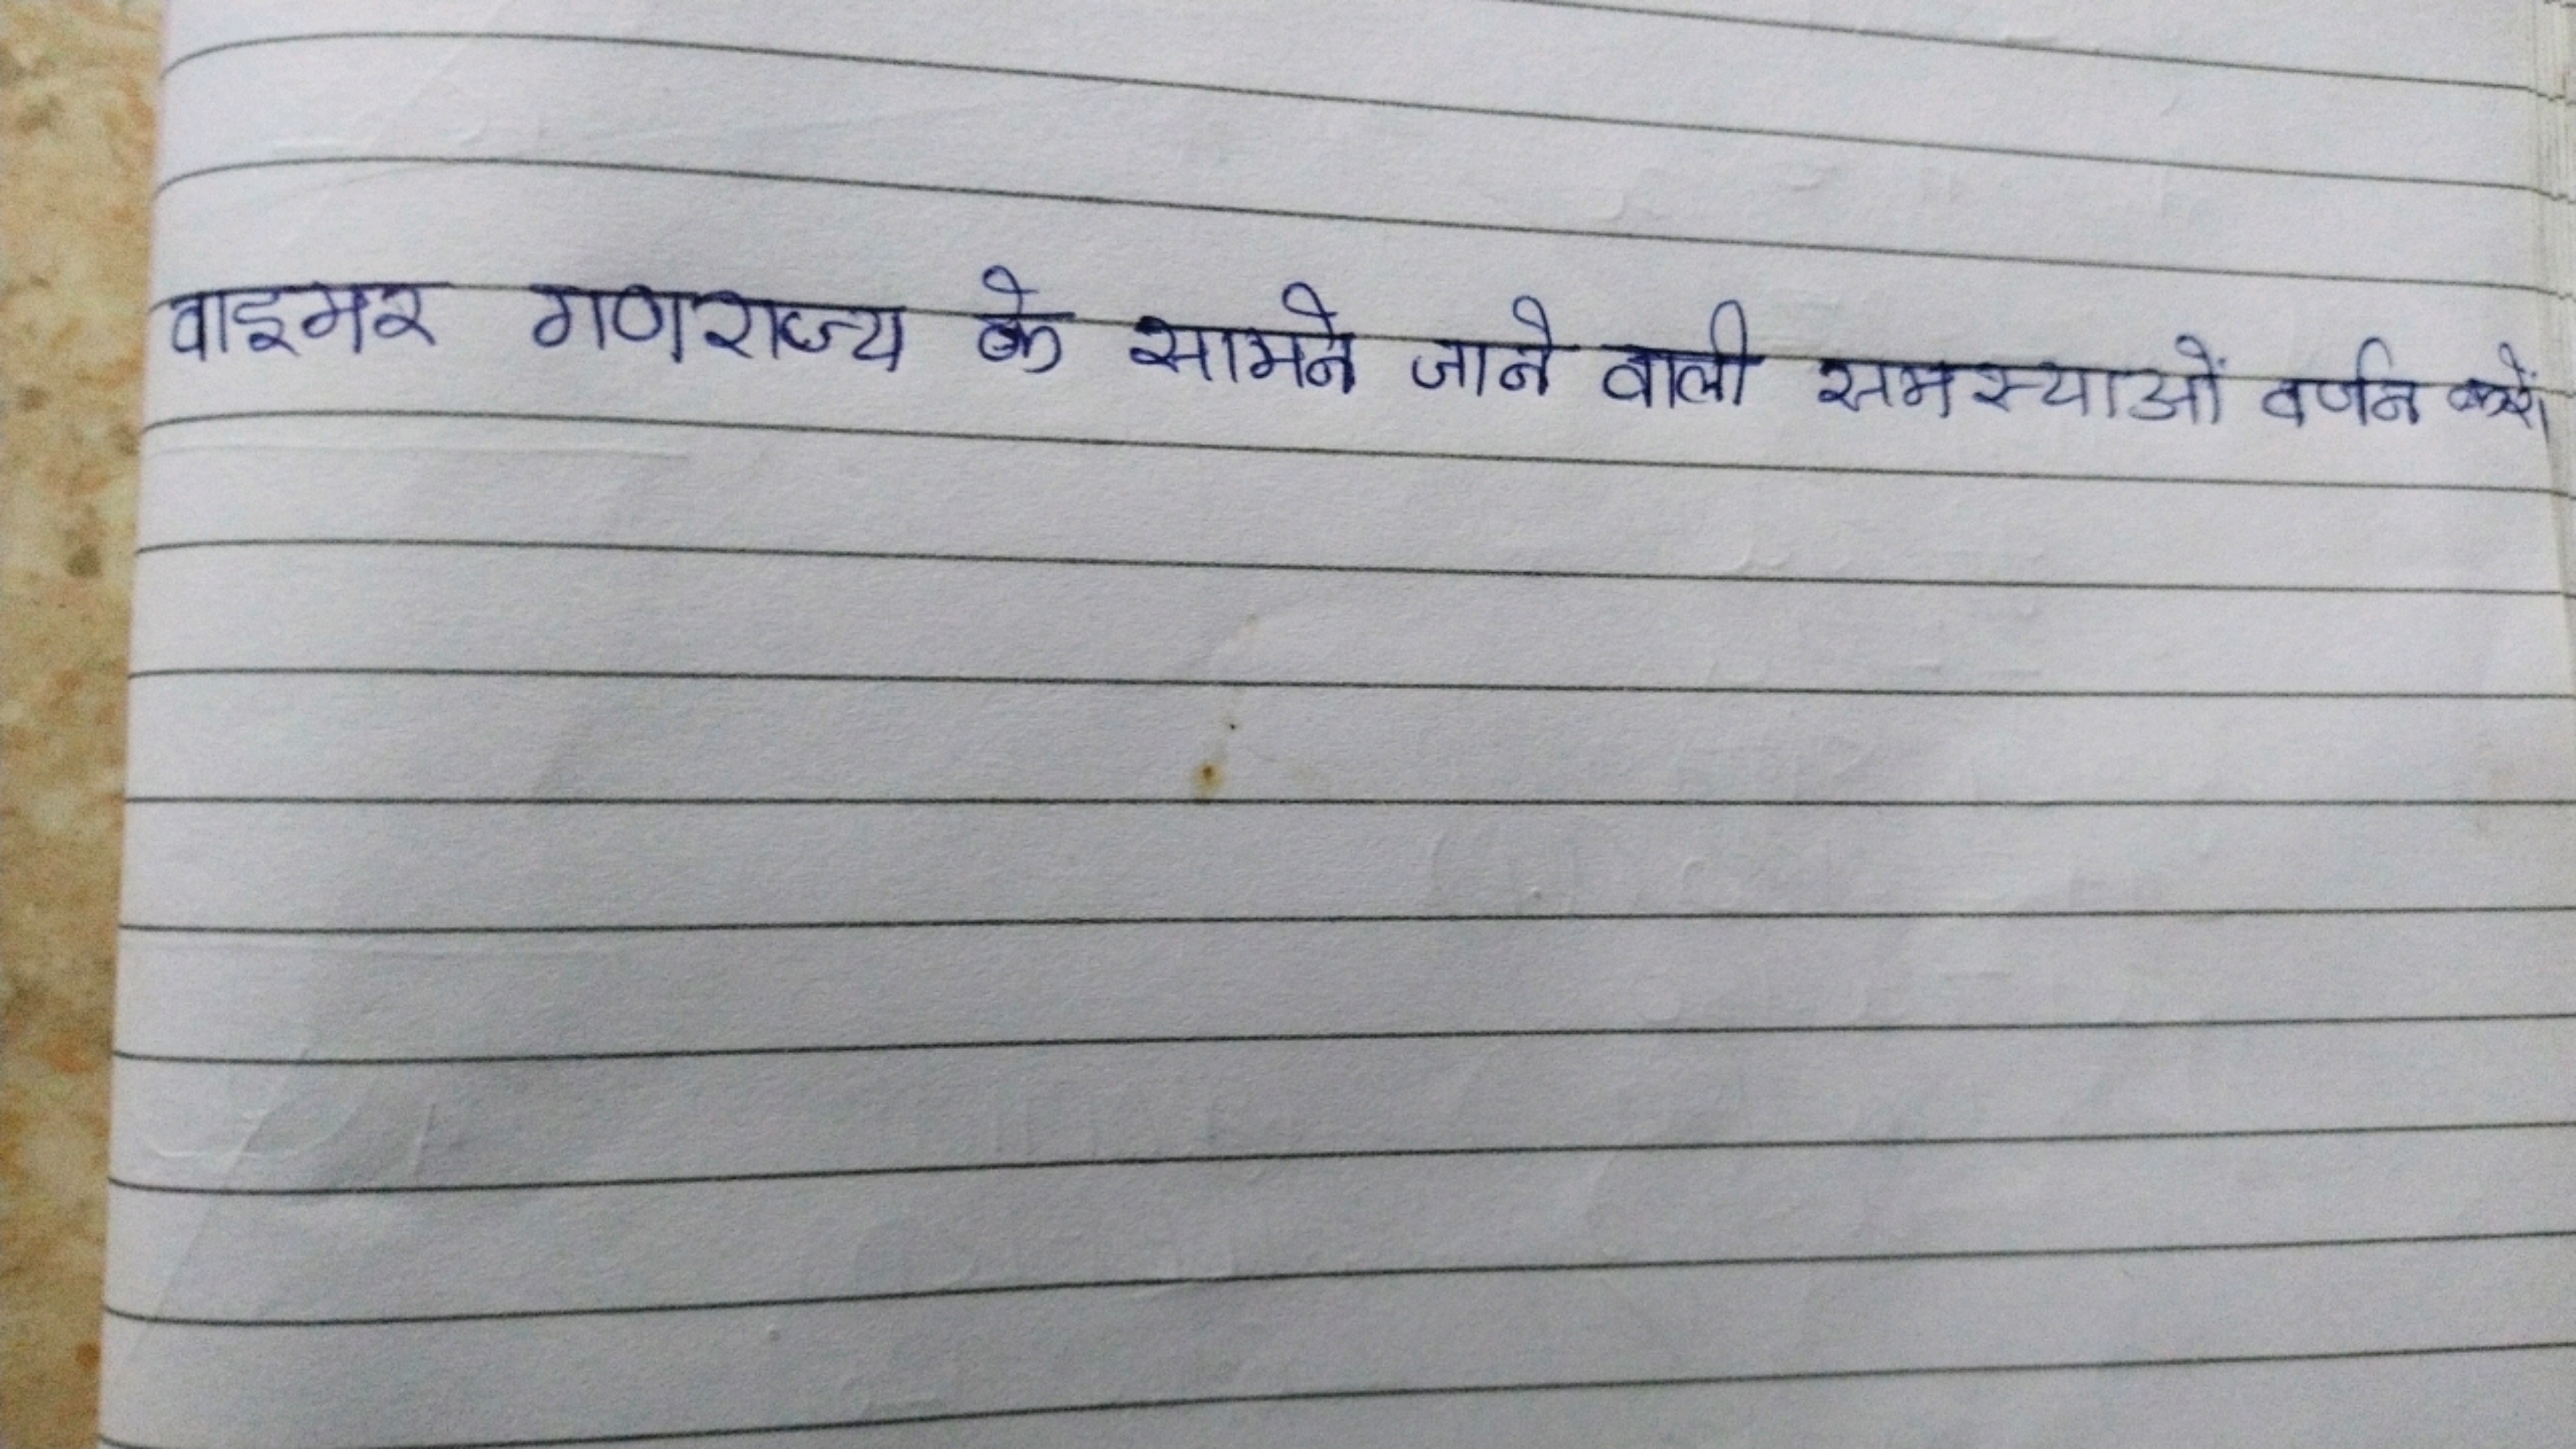 वाइमर गणराज्य के सामने जाने वाली समस्याओं वर्णन करें।